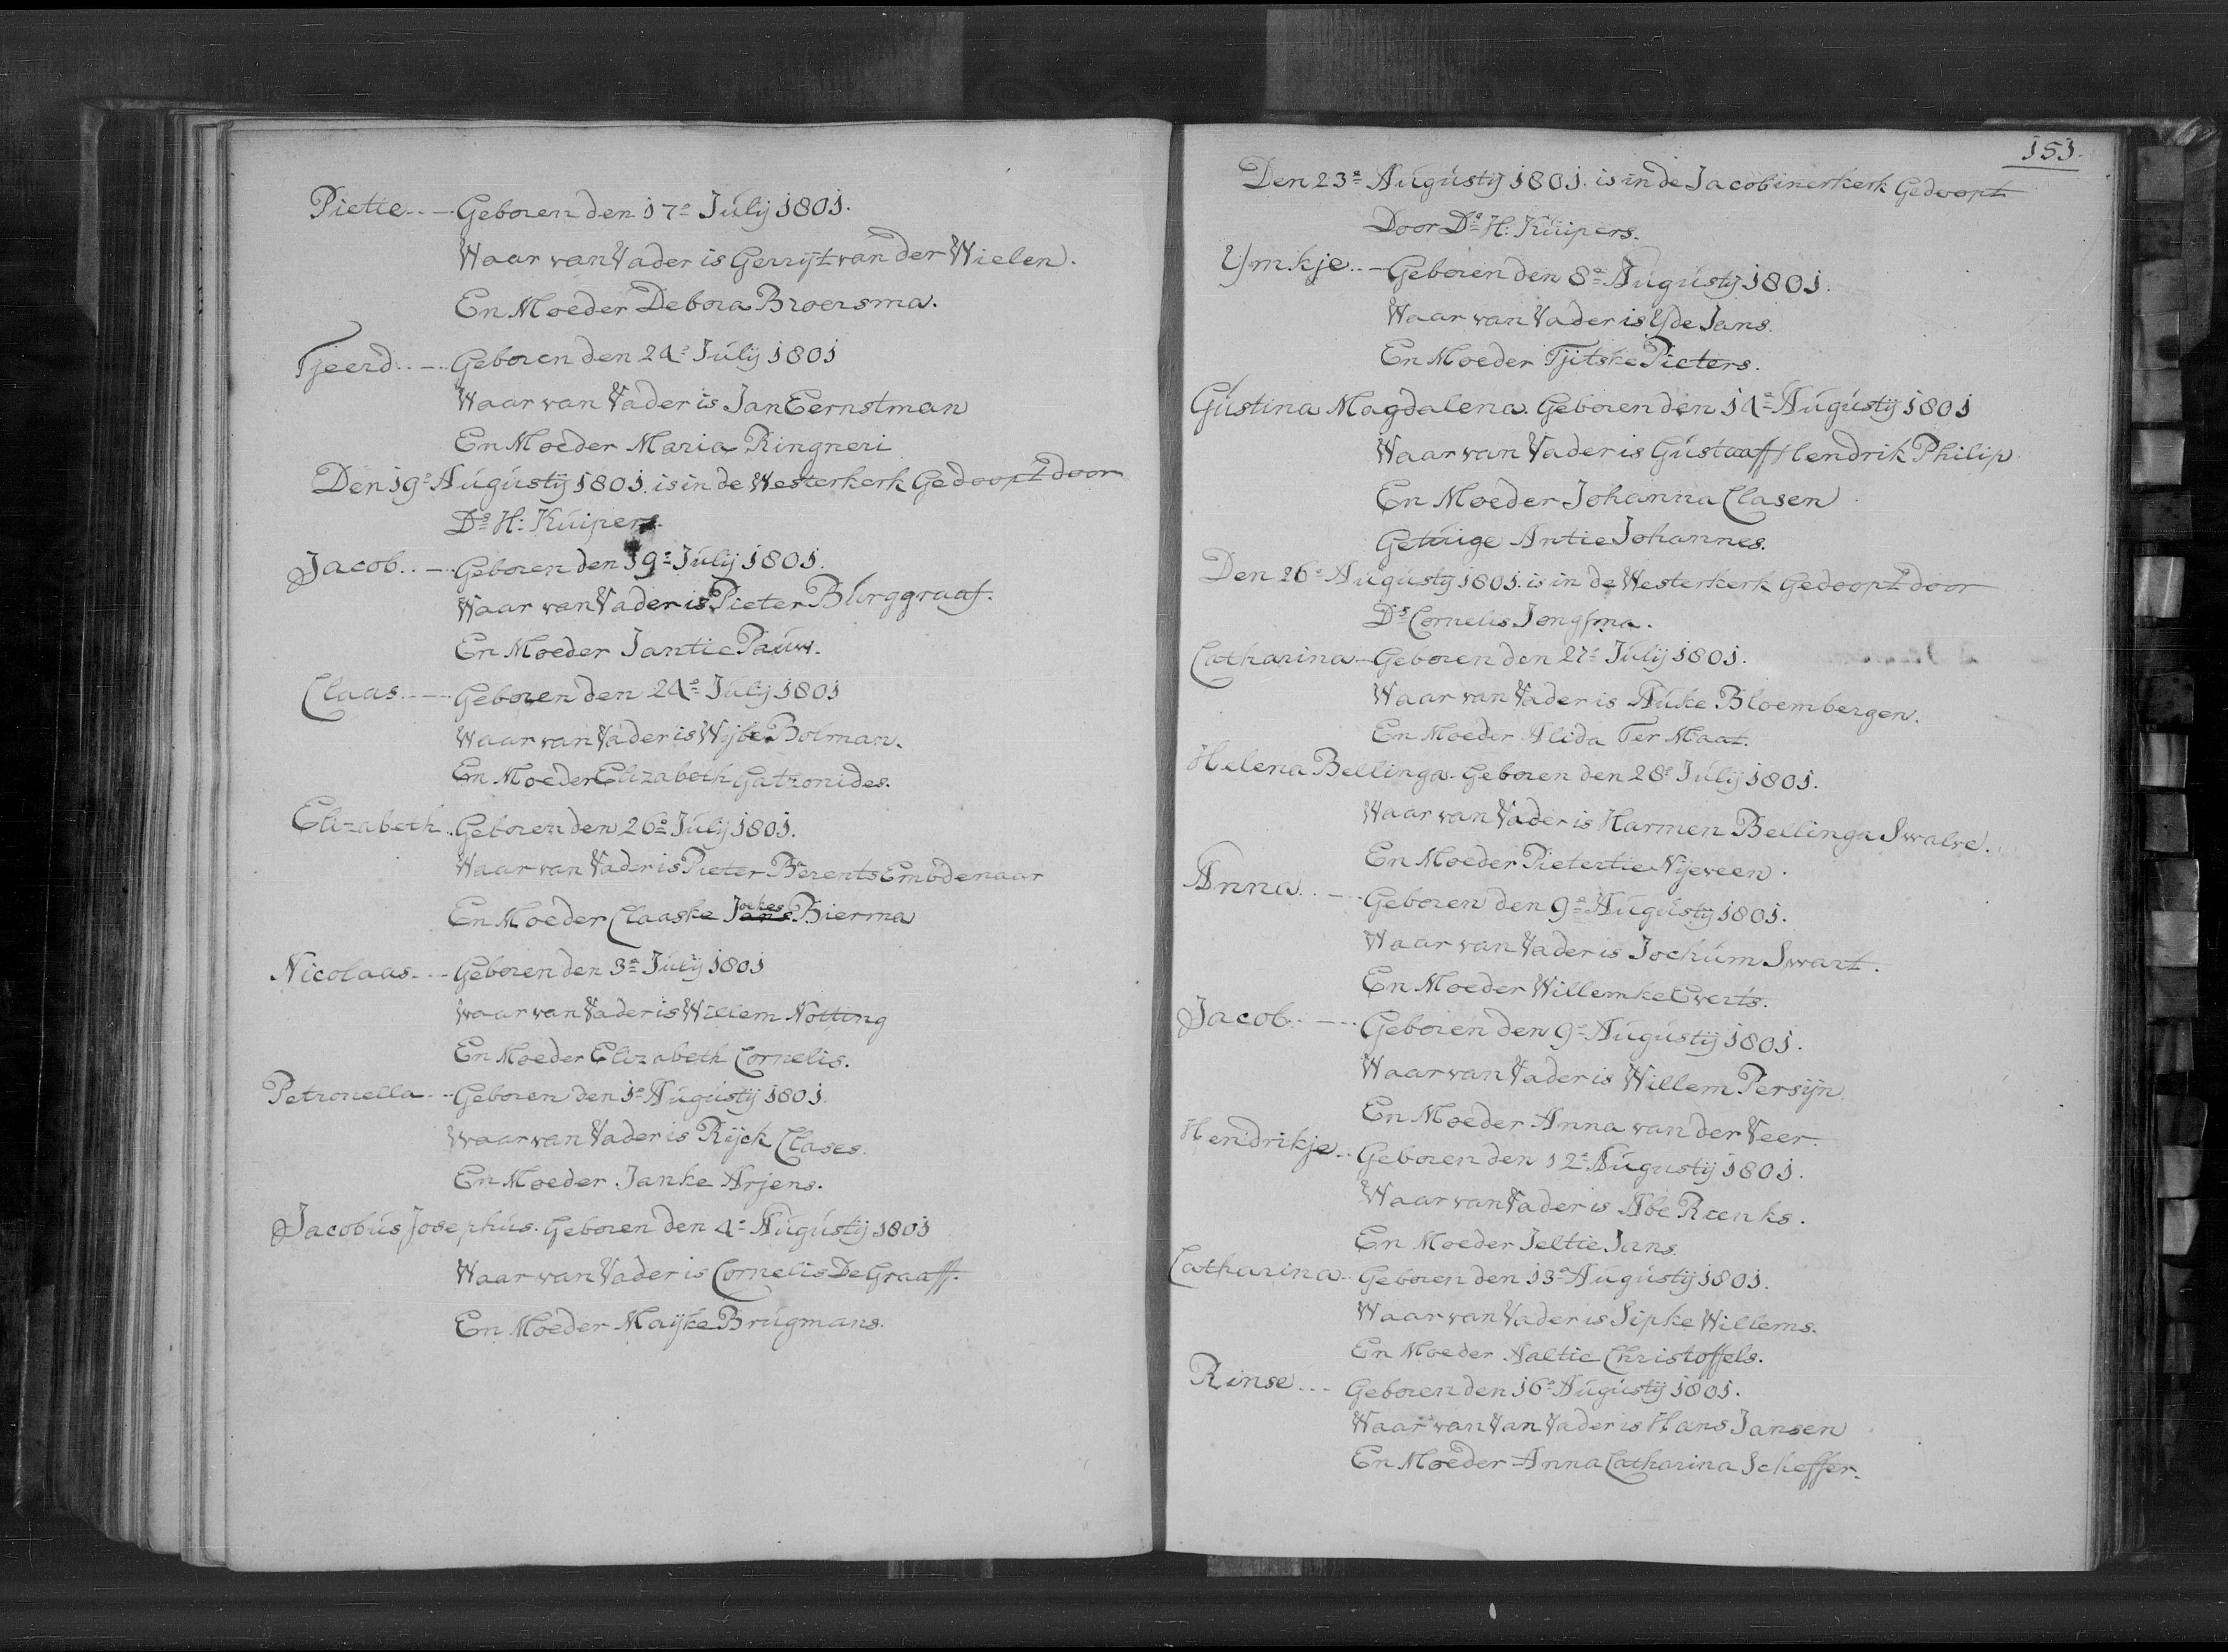 Pietie.. — Geboren den 17e July 1801.
Waar van Vader is Gerryt van der Wielen.
En Moeder Debora Broersma.
Tjeerd.. — Geboren den 24e July 1801
Waar van Vader is Jan Eernstman
En Moeder Maria Ringneri
Den 19e Augusty 1801. is in de Westerkerk Gedoopt door
Ds H: Kuipers.
Jacob.. — Geboren den 19e July 1801.
Waar van Vader is Pieter Burggraaf.
En Moeder Jantie Pauw.
Claas. — Geboren den 24e July 1801
Waar van Vader is Wybe Bolman.
En Moeder Elizabeth Gatronides.
Elizabeth.. Geboren den 26e July 1801.
Waar van Vader is Pieter Berents Embdenaar
En Moeder Claaske Jans Joekes Bierma
Nicolaas. — Geboren den 3e July 1801
Waar van Vader is Willem Notting
En Moeder Elizabeth Cornelis.
Petronella.. Geboren den 1e Augusty 1801.
Waar van Vader is Ryck Clases.
En Moeder Janke Arjens.
Jacobus Josephus. Geboren den 4e Augusty 1801
Waar van Vader is Cornelis De Graaff.
En Moeder Mayke Brugmans.
151.
Den 23e Augusty 1801. is in de Jacobinerkerk Gedoopt
Door Ds H: Kuipers.
Ymkje.. — Geboren den 8e Augusty 1801.
Waar van Vader is Yde Jans.
En Moeder Tjitske Pieters.
Gustina Magdalena. Geboren den 14e Augusty 1801
Waar van Vader is Gustaaff Hendrik Philip
En Moeder Johanna Clasen
Getuige Antie Johannes.
Den 26e Augusty 1801. is in de Westerkerk Gedoopt door
Ds Cornelis Jongsma.
Catharina — Geboren den 27e July 1801.
Waar van Vader is Auke Bloembergen.
En Moeder Alida Ter Maat.
Helena Bellinga. Geboren den 28e July 1801.
Waar van Vader is Harmen Bellinga Swalve.
En Moeder Pietertie Nijeveen.
Anna.. — Geboren den 9e Augusty 1801.
Waar van Vader is Jochum Swart.
En Moeder Willemke Everts.
Jacob.. — Geboren den 9e Augusty 1801.
Waar van Vader is Willem Persijn
En Moeder Anna van der Veer.
Hendrikje.. Geboren den 12e Augusty 1801.
Waar van Vader is Abe Reenks.
En Moeder Jeltie Jans.
Catharina.. Geboren den 13e Augusty 1801.
Waar van Vader is Sipke Willems.
En Moeder Aaltie Christoffels.
Rinse... Geboren den 16e Augusty 1801.
Waar van Van Vader is Hans Jansen
En Moeder Anna Catharina Scheffer.